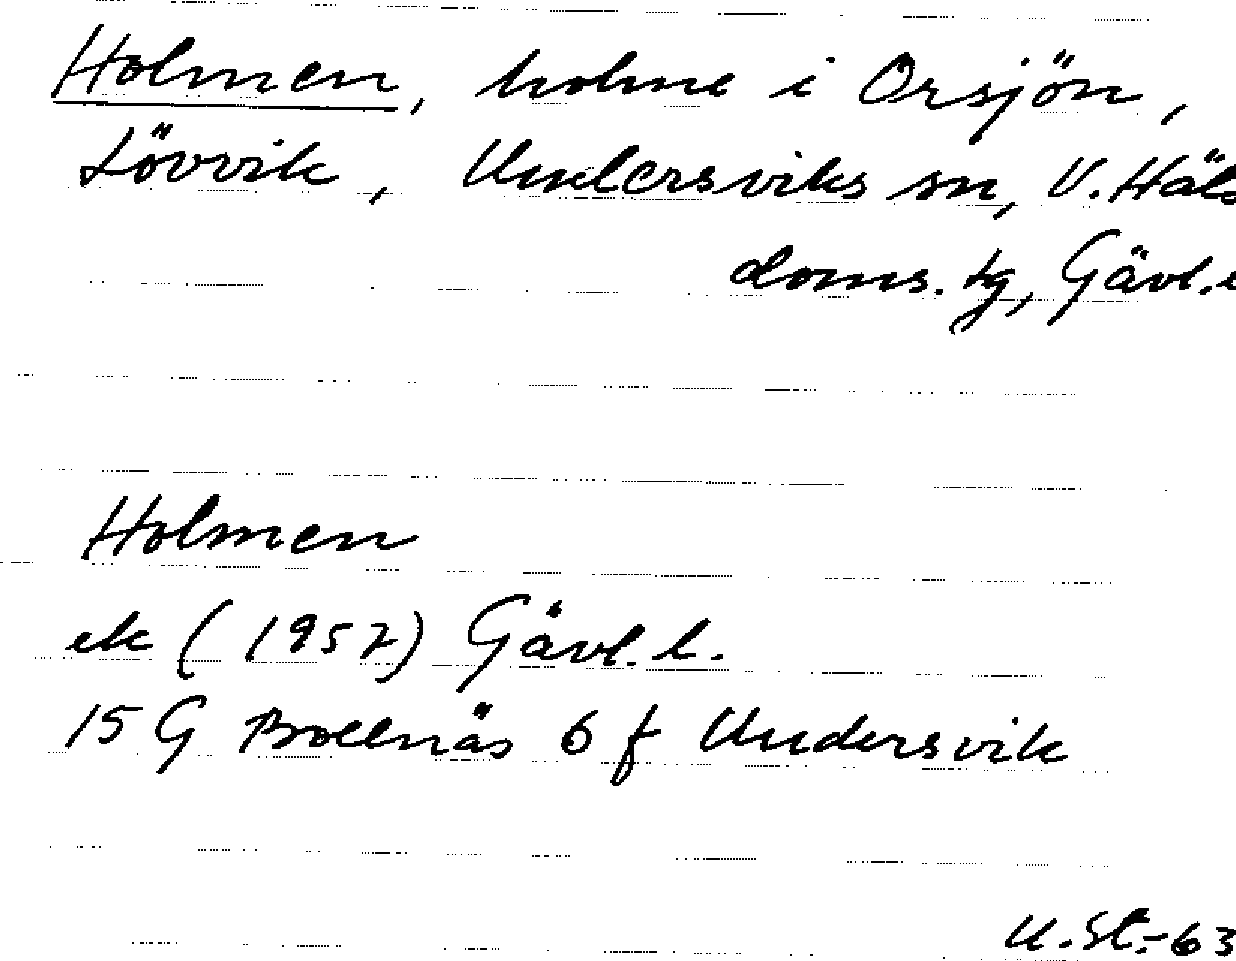 Holmen, holme i Orsjön,
Lövvik, Undersviks sn, V. Häls
doms. tg, Gävl.
Holmen
ek (1957) Gävl. l.
15 G Bollnäs 6 f Undersvik
U. St. -63